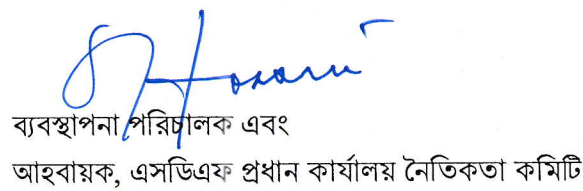 ব্যবস্থাপনা পরিচালক এবং
আহবায়ক, এসডিএফ প্রধান কার্যালয় নৈতিকতা কমিটি